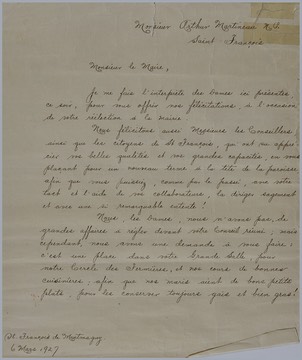 Monsieur Arthur Martineau N.4
Saint François
Monsieur le Maire,
Je me fais l'interprète des Dames ici présentes
ce soir, pour vous offrir nos félicitations, à l'occasion
de votre réélection à la mairie.
Nous félicitons aussi Messieurs les Conseillers
ainsi que les citoyens de St François, qui ont su appré-
cier vos belles qualités et vos grandes capacités, en vous
plaçant pour un nouveau terme à la tête de la paroisse
afin que vous puissiez, comme par le passé, avec votre
tact et l'aide de vos collaborateurs, la diriger sagement
et avec une si remarquable entente!
Nous, les Dames, nous n'avons pas, de
grandes affaires à régler devant votre Conseil réuni; mais
cependant, nous avons une demande à vous faire;
c'est une place dans votre Grande Salle, pour
notre Cercle des Fermières, et nos cours de bonnes
cuisinières, afin que nos maris aient de bons petits
plats, pour les conserver toujours gais et bien gras!
St. François de Montmagny
6 Mars 1927